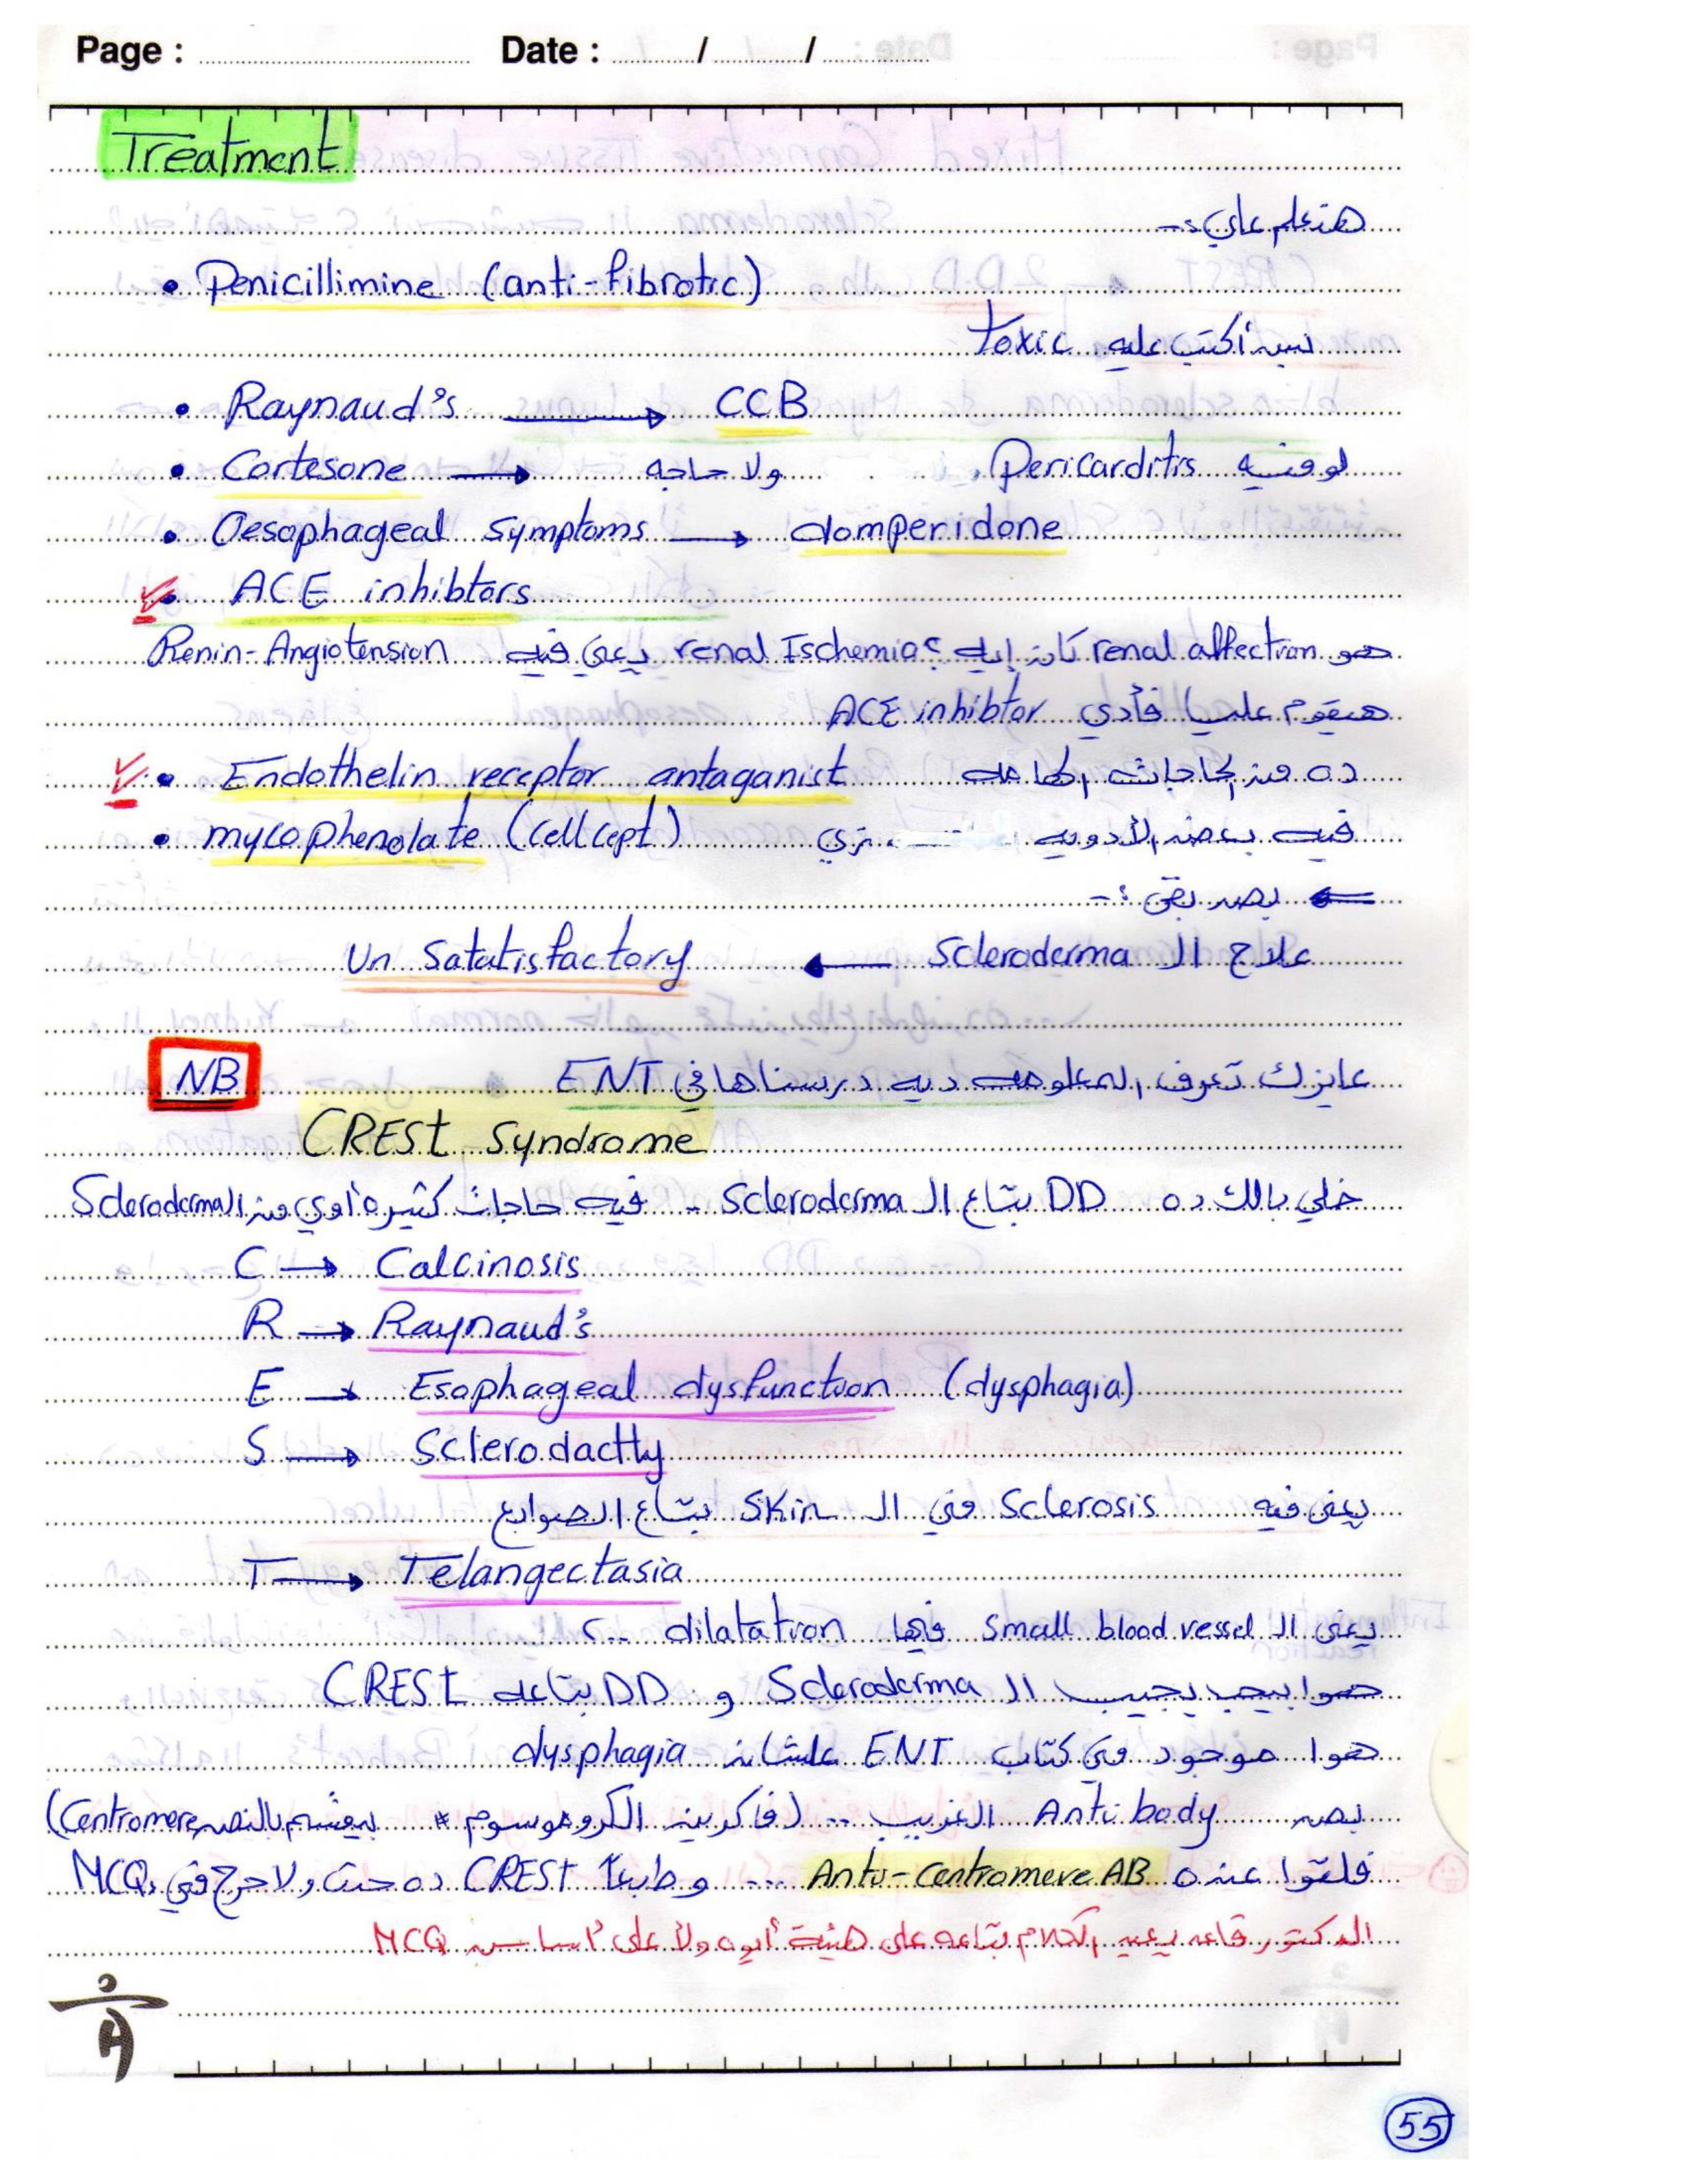 Page : Date : / /
Treatment
هنعلم علي :-
• Penicillimine (anti-fibrotic)
بس أكتب عليه toxic
• Raynaud's → CCB
• Cortesone → ولا حاجه لو فيه Pericarditis
• Oesophageal symptoms → domperidone
• ACE inhibtors
هو renal affection كان إيه؟ renal Ischemia يعني فيه Renin-Angiotension
هيقوم عليها فأدي ACE inhibtor
• Endothelin receptor antaganist ده من الحاجات الهامه
• mycophenolate (cellcept) فيه بعض الأدويه زي
⇐ بص بقى :-
علاج ال Scleroderma ← Un Satatisfactory
NB عايزك تعرف المعلومه ديه درسناها في ENT
CREST Syndrome
خلي بالك ده DD بتاع ال Scleroderma - فيه حاجات كتيره أوي من ال Scleroderma
C → Calcinosis
R → Raynaud's
E → Esophageal dysfunction (dysphagia)
S → Sclerodactly
يعني فيه Sclerosis في ال Skin بتاع الصوابع
T → Telangectasia
يعني ال small blood vessel فيها dilatation
هوا بيحب يجيب ال Scleroderma و DD بتاعه CREST
هوا موجود في كتاب ENT علشان dysphagia
بص Anti body الغريب .. (فاكرين الكروموسوم * بيقسم بالنص Centromere)
فلقوا عنده Anti-Centromere AB ... وطبعا CREST ده حدث ولا حرج في MCQ
الدكتور قاعد يعيد الكلام بتاعه على هيئة أيوه ولا على أساس MCQ
55